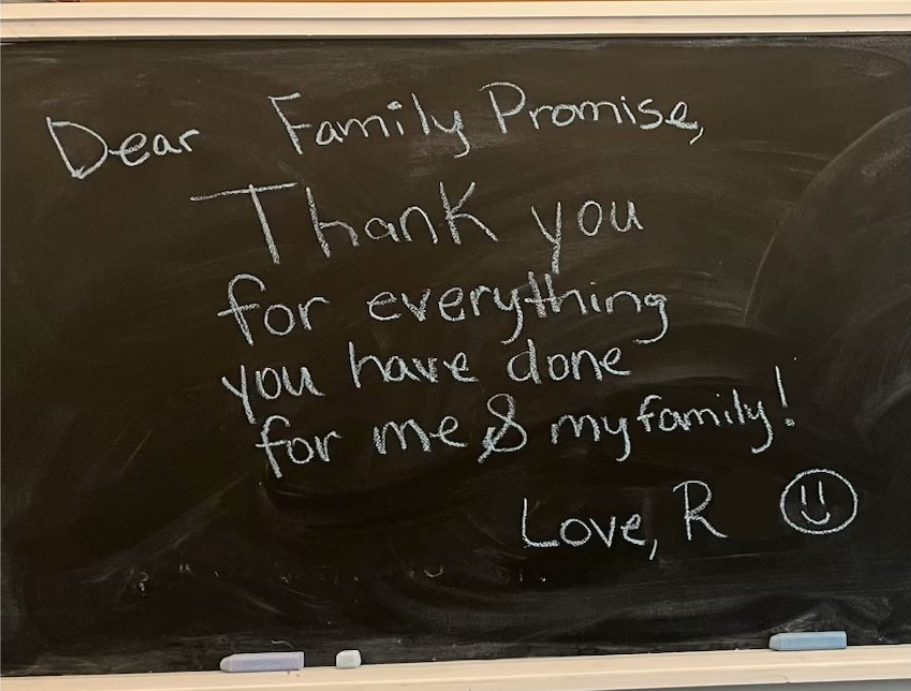 Dear Family Promise,
Thank you
for everything
you have done
for me & my family!
Love, R